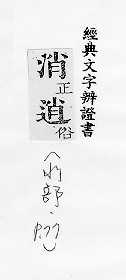 經典文字辨證書
消正
逍俗
(水部